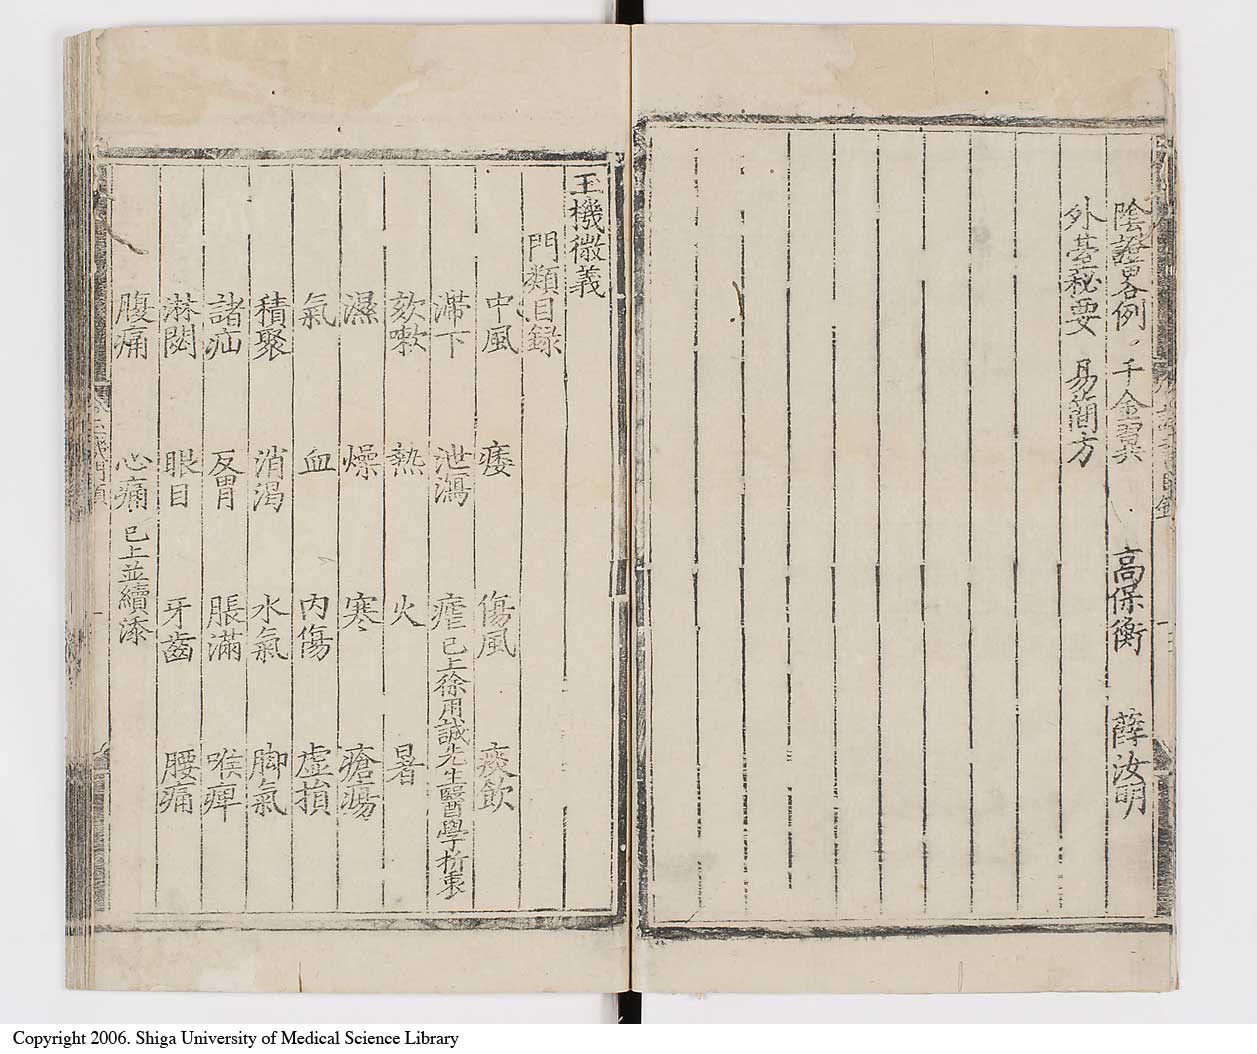 陰證畧例 千金翼 高保衡 薛汝明
外臺秘要 易簡方
玉機微義
門類目録
中風 痿 傷風 痰飲
滞下 泄瀉 瘧 已上徐用誠先生醫學折衷
欬嗽 熱 火 暑
濕 燥 寒 瘡瘍
氣 血 内傷 虚損
積聚 消渴 水氣 脚氣
諸疝 反胃 脹滿 喉痺
淋閟 眼目 牙齒 腰痛
腹痛 心痛 已上並續添
Copyright 2006. Shiga University of Medical Science Library